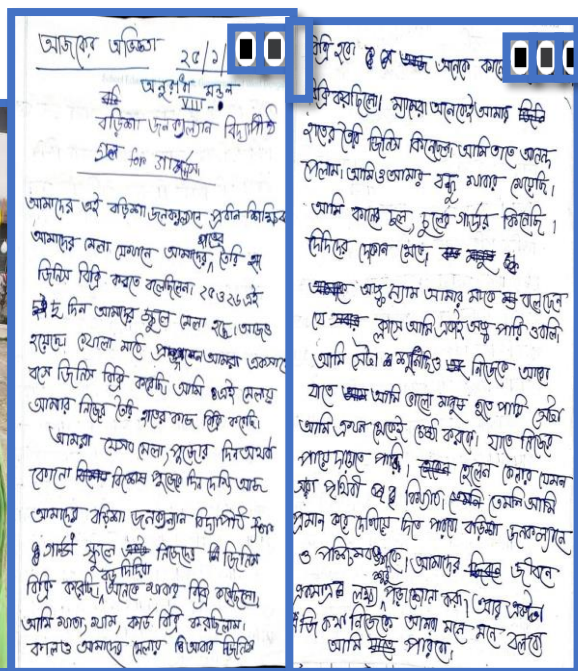 আজকের অভিজ্ঞতা
২৫/১/
অনুরাধা মন্ডল
VIII -
বড়িশা জনকল্যান বিদ্যাপীঠ
for গার্লস
আমাদের এই বড়িশা জনকল্যানে প্রবীন শিক্ষিকা
আমাদের মেলা যেখানে আমাদের হাতের তৈরি
জিনিস বিক্রি করতে বলেছিলেন। ২৫ও২৬ এই
দিন আমাদের স্কুলে মেলা হচ্ছে। আজও
হয়েছে। খোলা মাঠে আমরা একসাথে
বসে জিনিস বিক্রি করেছি। আমি এই মেলায়
আমার নিজের তৈরি হাতের কাজ বিক্রি করেছি।
আমরা যেসব মেলা, পুজোর দিন অথবা
কোনো বিশেষ পুজোর দিন দেখি আজ
আমাদের বড়িশা জনকল্যান বিদ্যাপীঠ for
গার্লস স্কুলে নিজেদের জিনিস
বিক্রি করেছি। বড় দিদিরা অনেকে খাবার বিক্রি করেছিলো,
আমি খাতা, খাম, কার্ড বিক্রি করছিলাম।
কালও আমাদের মেলায় আবার জিনিস
বিক্রি হবে। অনেকে কানের
বিক্রি করছিলো। ম্যামরা অনেকেই আমার
হাতের তৈরি জিনিস কিনেছেন, আমি তাতে আনন্দ
পেলাম। আমিও আমার বন্ধু খাবার খেয়েছি।
আমি কানের দুল, চুলের গার্ডার কিনেছি।
দিদিদের দোকান থেকে,
অঙ্ক ম্যাম আমার মাকে বলে দেন
যে ক্লাসে আমি একাই অঙ্ক পারি ওবলি।
আমি সেটা শুনিনিও নিজেকে আরো
যাতে আমি ভালো মানুষ হতে পারি সেটা
আমি এখন থেকেই চেষ্টা করবো। যাতে নিজের
পায়ে দাঁড়াতে পারি। হেলেন কেলার যেমন
পৃথিবী বিখ্যাত। তেমনি আমি
প্রমান করে দেখিয়ে দিতে পারবো বড়িশা জনকল্যানে
ও পশ্চিমবঙ্গকে। আমাদের জীবনে
একমাত্র লক্ষ্য শুধু পড়াশোনা করা। আর একটা
কথা নিজেকে আমরা মনে মনে বলবো
আমি পারবো।